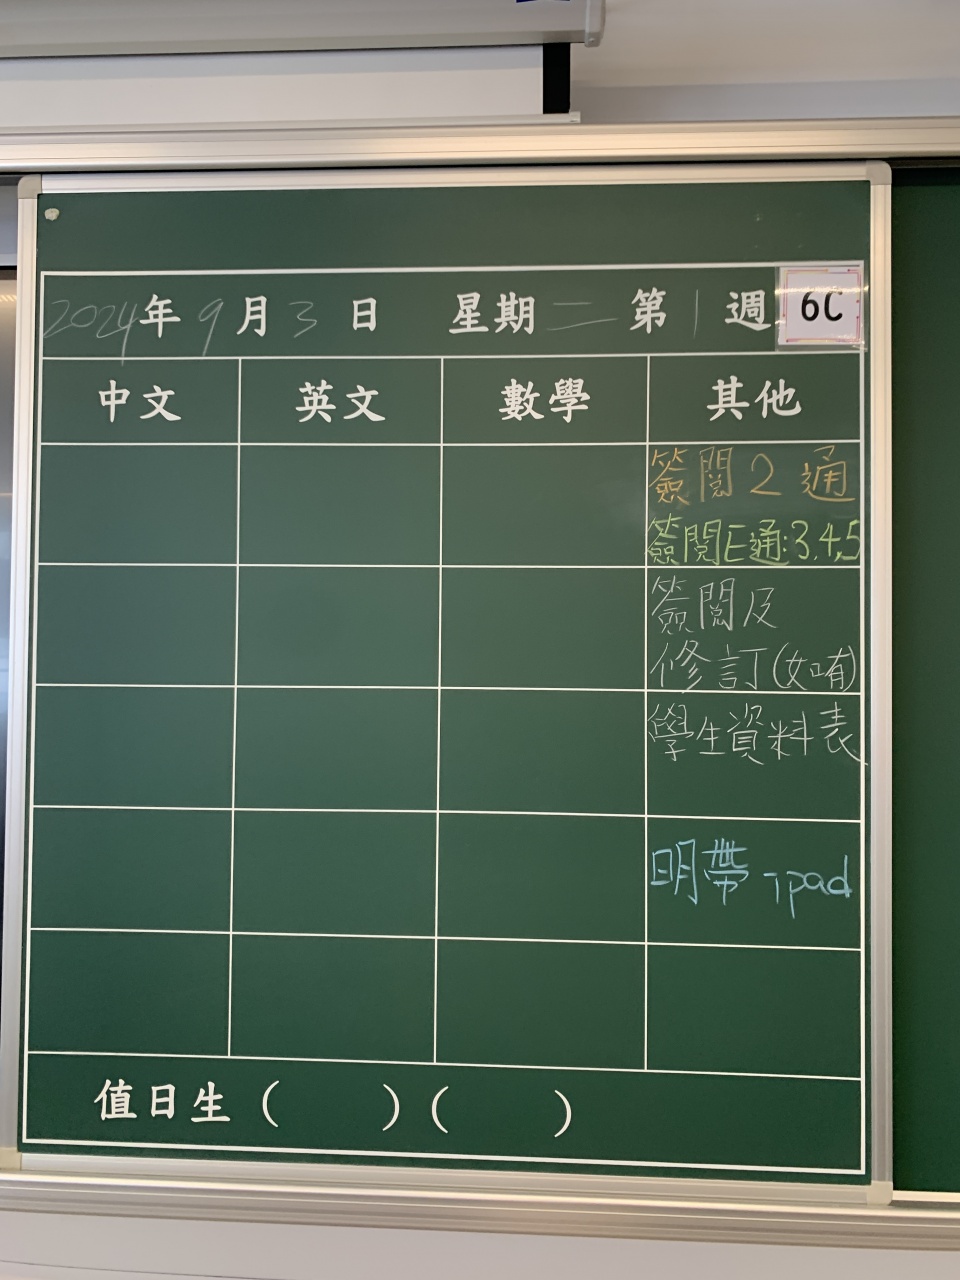 2024年9月3日 星期二 第1週 6C
中文 英文 數學 其他
簽閱2通
簽閱E通:3,4,5
簽閱及
修訂(如有)
學生資料表
明帶ipad
值日生( )( )